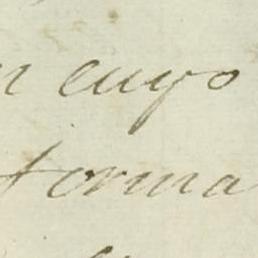 cuyo
forma